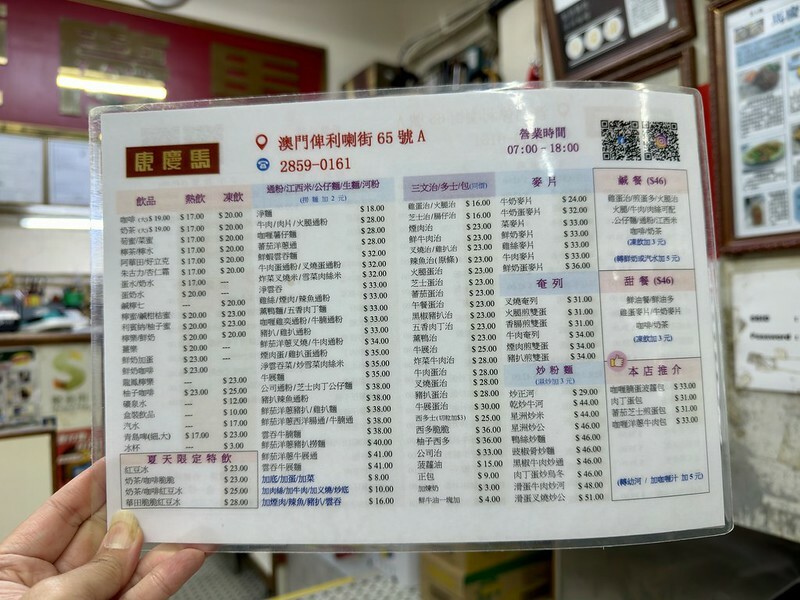 康慶馬
澳門俾利喇街 65 號 A
2859-0161
營業時間
07:00 - 18:00
飲品 熱飲 凍飲
咖啡 (大)$ 19.00 $ 17.00 $ 20.00
奶茶 (大)$ 19.00 $ 17.00 $ 20.00
菊蜜/菜蜜 $ 17.00 $ 20.00
檸茶/檸水 $ 17.00 $ 20.00
阿華田/好立克 $ 17.00 $ 20.00
朱古力/杏仁霜 $ 17.00 $ 20.00
蛋水/奶水 $ 17.00 ---
蛋奶水 $ 20.00 ---
鹹檸七 --- $ 20.00
檸蜜/鹹柑桔蜜 $ 20.00 $ 23.00
利賓納/柚子蜜 $ 20.00 $ 23.00
檸樂/檸七 $ 20.00 $ 20.00
薑樂 $ 20.00 ---
鮮奶加蛋 $ 23.00 ---
鮮奶咖啡 $ 23.00 ---
龍鳳檸樂 --- $ 23.00
柚子咖啡 --- $ 25.00
礦泉水 --- $ 12.00
盒裝飲品 --- $ 10.00
汽水 --- $ 17.00
青島啤(細,大) $ 17.00 $ 23.00
冰杯 --- $ 3.00
夏天限定特飲
紅豆冰 $ 23.00
奶茶/咖啡脆脆 $ 23.00
奶茶/咖啡紅豆冰 $ 25.00
華田脆脆紅豆冰 $ 28.00
通粉/江西米/公仔麵/生麵/河粉
(撈麵加 2 元)
淨麵 $ 18.00
牛肉/肉片/火腿通粉 $ 28.00
咖喱薯仔麵 $ 28.00
蕃茄洋蔥通 $ 28.00
鮮蝦雲吞麵 $ 32.00
牛肉蛋通粉/叉燒蛋通粉 $ 32.00
炸菜叉燒米/雪菜肉絲米 $ 32.00
淨雲吞 $ 33.00
雞絲/煙肉/辣魚通粉 $ 33.00
薰鴨麵/五香肉丁麵 $ 33.00
咖喱雞奕通粉/牛腩通粉 $ 33.00
豬扒/雞扒通粉 $ 33.00
鮮茄洋蔥雞/牛肉通 $ 34.00
煙肉蛋/雞扒蛋通粉 $ 35.00
淨雲吞菜/炒雪菜肉絲米 $ 35.00
牛展麵 $ 35.00
公司通粉/芝士肉丁公仔麵 $ 38.00
豬扒辣魚通粉 $ 38.00
鮮茄洋蔥豬扒/雞扒麵 $ 38.00
鮮茄洋蔥西洋腸通/牛腩通 $ 38.00
雲吞牛腩麵 $ 38.00
鮮茄洋蔥豬扒撈麵 $ 40.00
鮮茄洋蔥牛展通 $ 41.00
雲吞牛展麵 $ 41.00
加底/加蛋/加菜 $ 8.00
加肉絲/加牛肉/加叉燒/炒底 $ 10.00
加煙肉/辣魚/豬扒/雲吞 $ 16.00
三文治/多士/包(同價)
煎蛋治/火腿治 $ 16.00
芝士治/腸仔治 $ 16.00
煙肉治 $ 23.00
鮮牛肉治 $ 23.00
叉燒治/雞扒治 $ 23.00
辣魚治 (原條) $ 23.00
火腿蛋治 $ 23.00
芝士蛋治 $ 23.00
蕃茄蛋治 $ 23.00
午餐蛋治 $ 23.00
黑椒豬扒治 $ 23.00
五香肉丁治 $ 23.00
薰鴨治 $ 23.00
牛展治 $ 25.00
炸菜牛肉治 $ 28.00
牛肉蛋治 $ 28.00
叉燒蛋治 $ 28.00
豬扒蛋治 $ 28.00
牛展蛋治 $ 30.00
西多士 (切粒加$3) $ 25.00
西多脆脆 $ 36.00
柚子西多 $ 36.00
公司治 $ 33.00
菠蘿油 $ 15.00
正包 $ 9.00
加煉奶 $ 3.00
鮮牛油一塊加 $ 4.00
麥片
牛奶麥片 $ 24.00
牛奶蛋麥片 $ 32.00
菜麥片 $ 33.00
鮮奶麥片 $ 33.00
雞絲麥片 $ 33.00
牛肉麥片 $ 33.00
鮮奶蛋麥片 $ 36.00
奄列
叉燒奄列 $ 31.00
火腿煎雙蛋 $ 31.00
香腸煎雙蛋 $ 31.00
牛肉奄列 $ 34.00
煙肉煎雙蛋 $ 34.00
豬扒煎雙蛋 $ 34.00
炒粉麵
(濕炒加 3 元)
炒正河 $ 29.00
乾炒牛河 $ 44.00
星洲炒米 $ 44.00
星洲炒公 $ 46.00
鴨絲炒麵 $ 46.00
豉椒骨炒麵 $ 46.00
黑椒牛肉炒通 $ 46.00
肉丁蛋炒烏冬 $ 46.00
滑蛋牛肉炒河 $ 48.00
滑蛋叉燒炒公 $ 51.00
鹹餐 ($46)
雞蛋治/煎蛋多/火腿治
火腿/牛肉/肉絲可配
公仔麵/通粉/江西米
咖啡/奶茶
(凍飲加 3 元)
(轉鮮奶或汽水加 5 元)
甜餐 ($46)
鮮油餐/鮮油多
雞蛋麥片/牛奶麥片
咖啡/奶茶
(凍飲加 3 元)
本店推介
咖喱脆蛋菠蘿包 $ 33.00
肉丁蛋包 $ 31.00
蕃茄芝士煎蛋包 $ 31.00
咖喱洋蔥牛肉包 $ 33.00
(轉幼河 / 加咖喱汁 加 5 元)